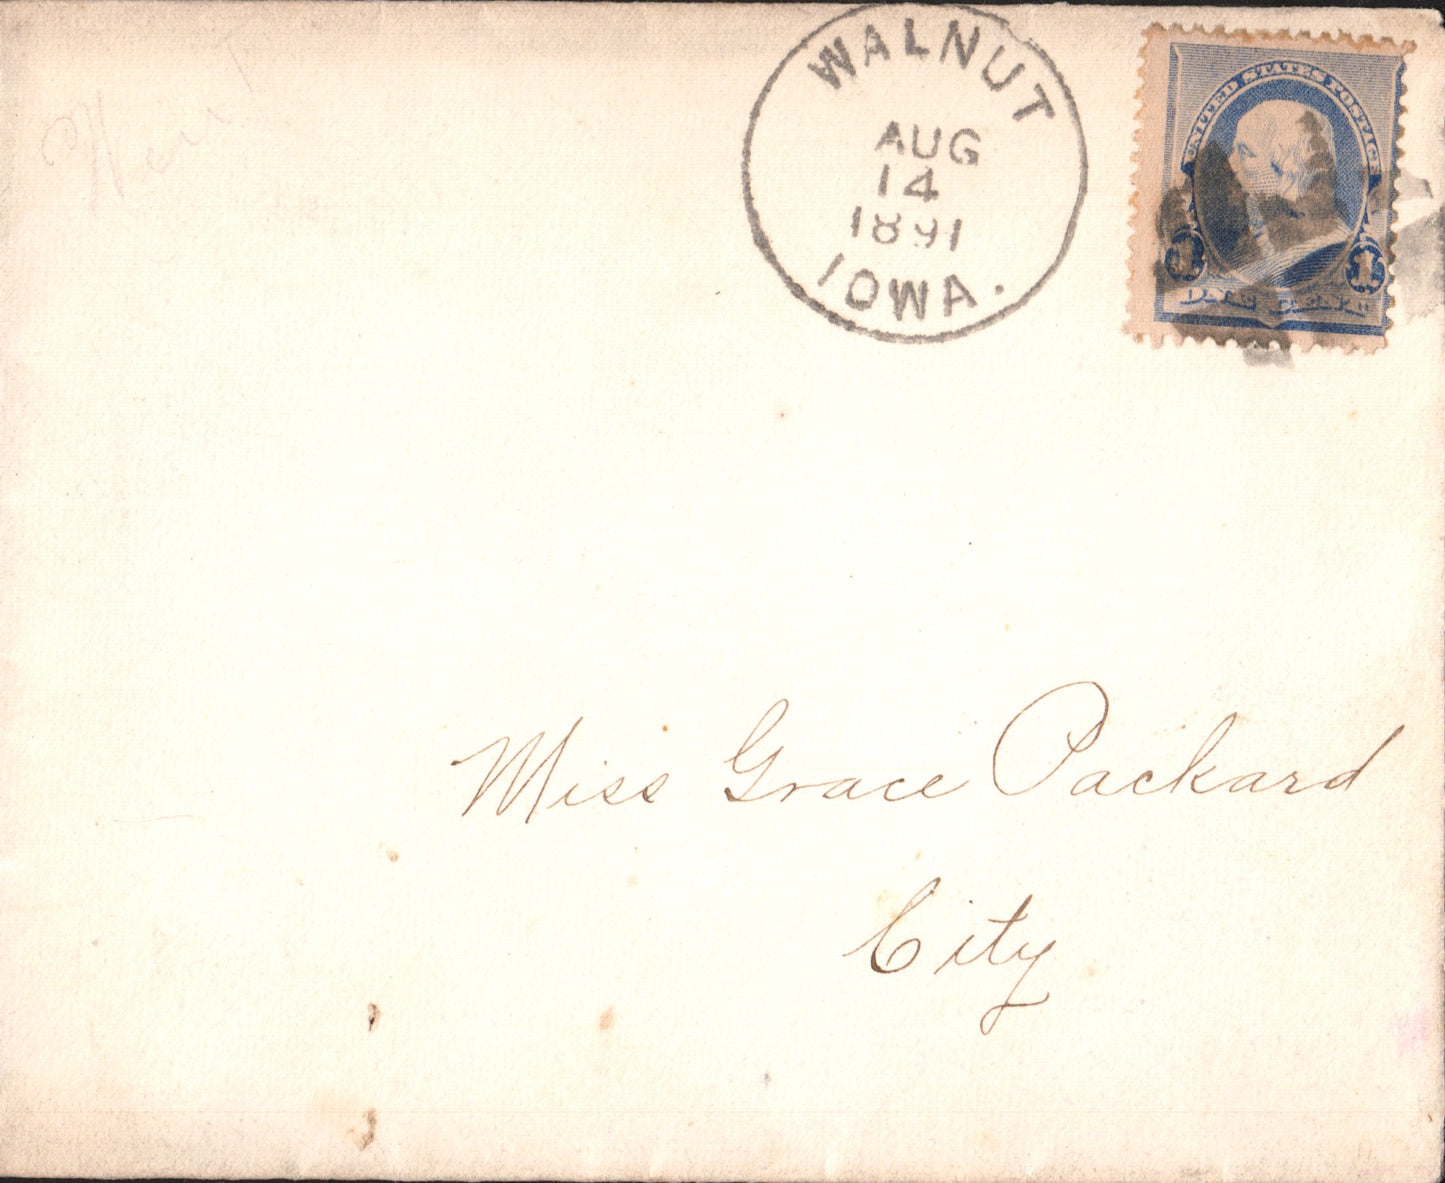 WALNUT
AUG
14
1891
IOWA.
UNITED STATES POSTAGE
1 1
ONE CENT
Miss Grace Packard
City